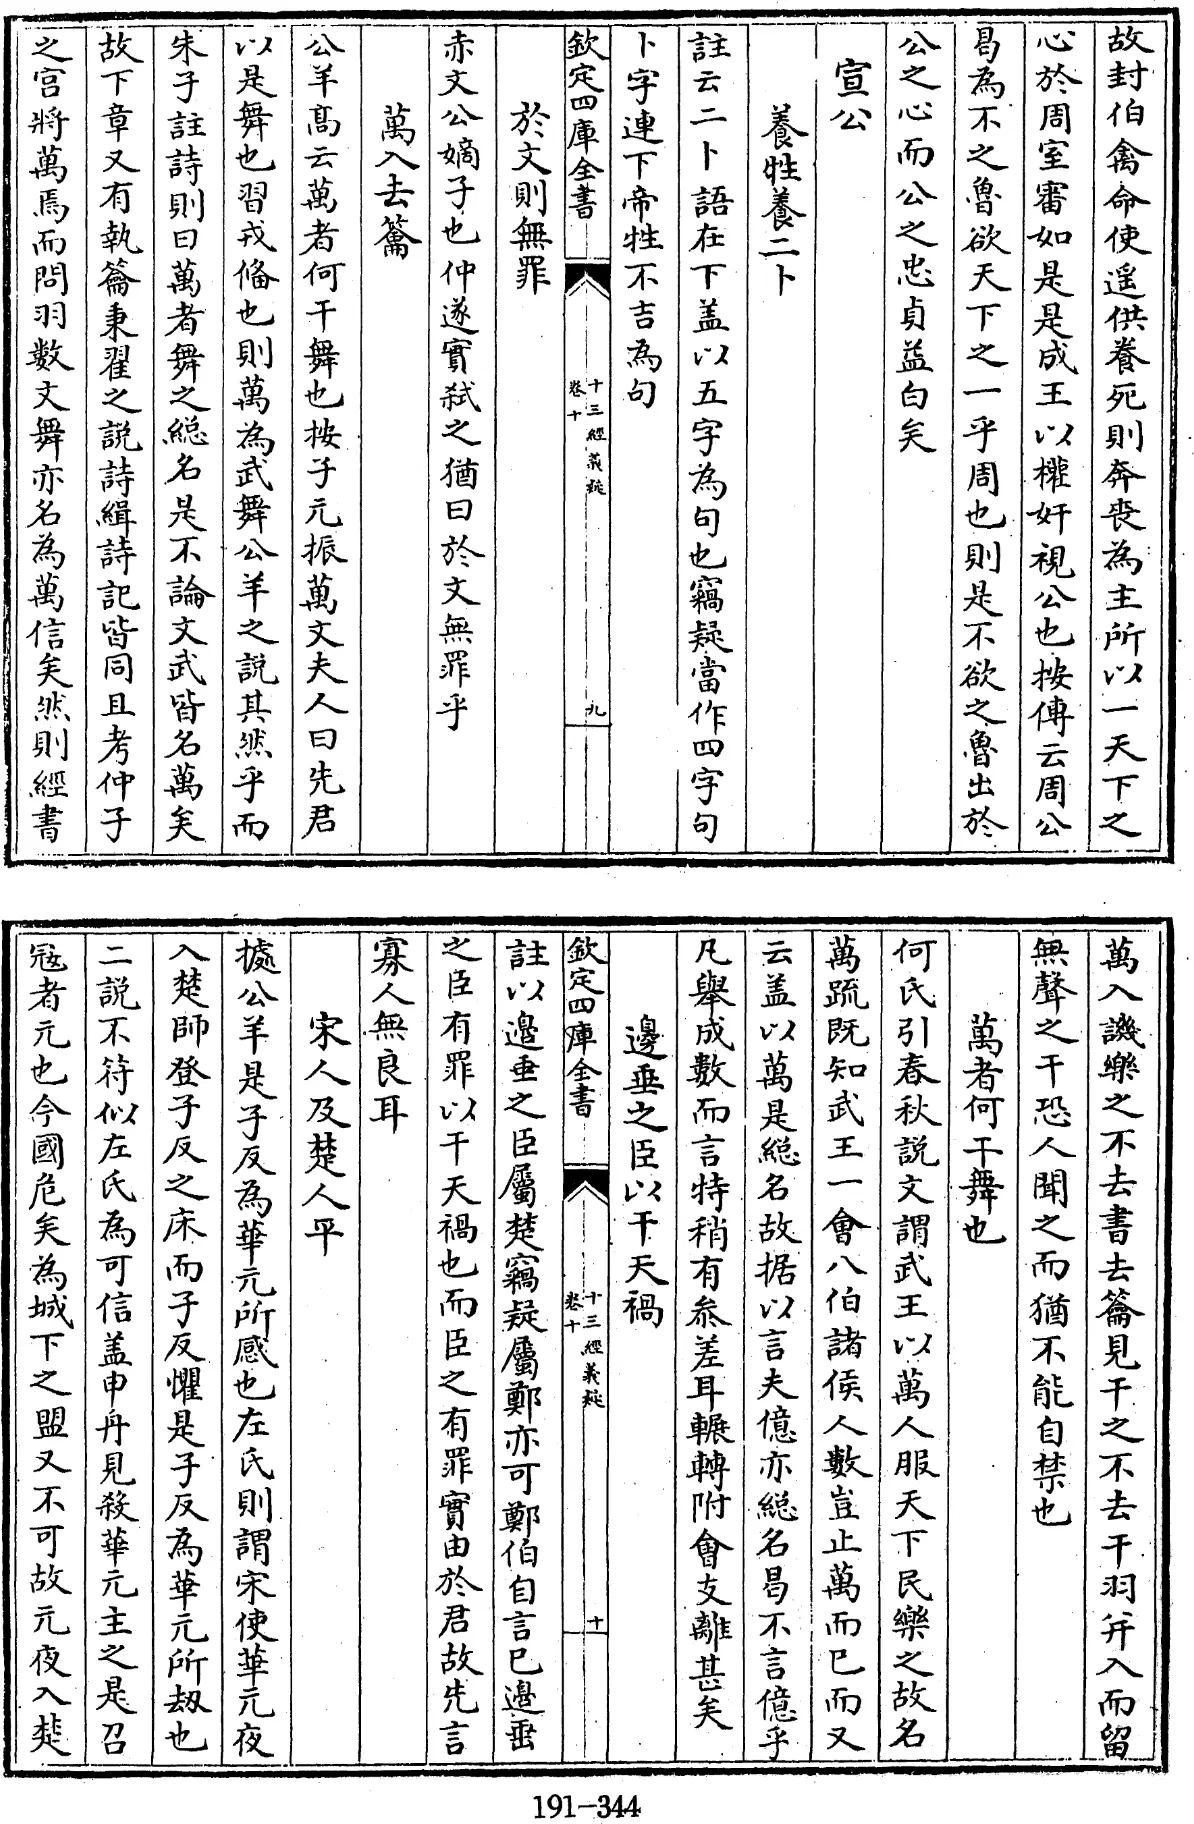 故封伯禽命使遥供養死則奔喪為主所以一天下之
心於周室審如是是成王以權奸視公也按傳云周公
曷為不之魯欲天下之一乎周也則是不欲之魯出於
公之心而公之忠貞益白矣
宣公
養牲養二卜
註云二卜語在下盖以五字為句也竊疑當作四字句
卜字連下帝牲不吉為句
欽定四庫全書
十三經義疑
卷十
九
於文則無罪
赤文公嫡子也仲遂實弑之猶曰於文無罪乎
萬入去籥
公羊髙云萬者何干舞也按子元振萬文夫人曰先君
以是舞也習戎俻也則萬為武舞公羊之説其然乎而
朱子註詩則曰萬者舞之総名是不論文武皆名萬矣
故下章又有執籥秉翟之説詩緝詩記皆同且考仲子
之宫將萬焉而問羽數文舞亦名為萬信矣然則經書
萬入譏樂之不去書去籥見干之不去干羽并入而留
無聲之干恐人聞之而猶不能自禁也
萬者何干舞也
何氏引春秋説文謂武王以萬人服天下民樂之故名
萬疏既知武王一會八伯諸侯人數豈止萬而已而又
云盖以萬是総名故据以言夫億亦総名曷不言億乎
凡舉成數而言特稍有叅差耳輾轉附會支離甚矣
邊垂之臣以干天禍
欽定四庫全書
十三經義疑
卷十
十
註以邊垂之臣屬楚竊疑屬鄭亦可鄭伯自言已邊垂
之臣有罪以干天禍也而臣之有罪實由於君故先言
寡人無良耳
宋人及楚人平
據公羊是子反為華元所感也左氏則謂宋使華元夜
入楚師登子反之床而子反懼是子反為華元所刼也
二説不符似左氏為可信盖申舟見殺華元主之是召
冦者元也今國危矣為城下之盟又不可故元夜入楚
191-344